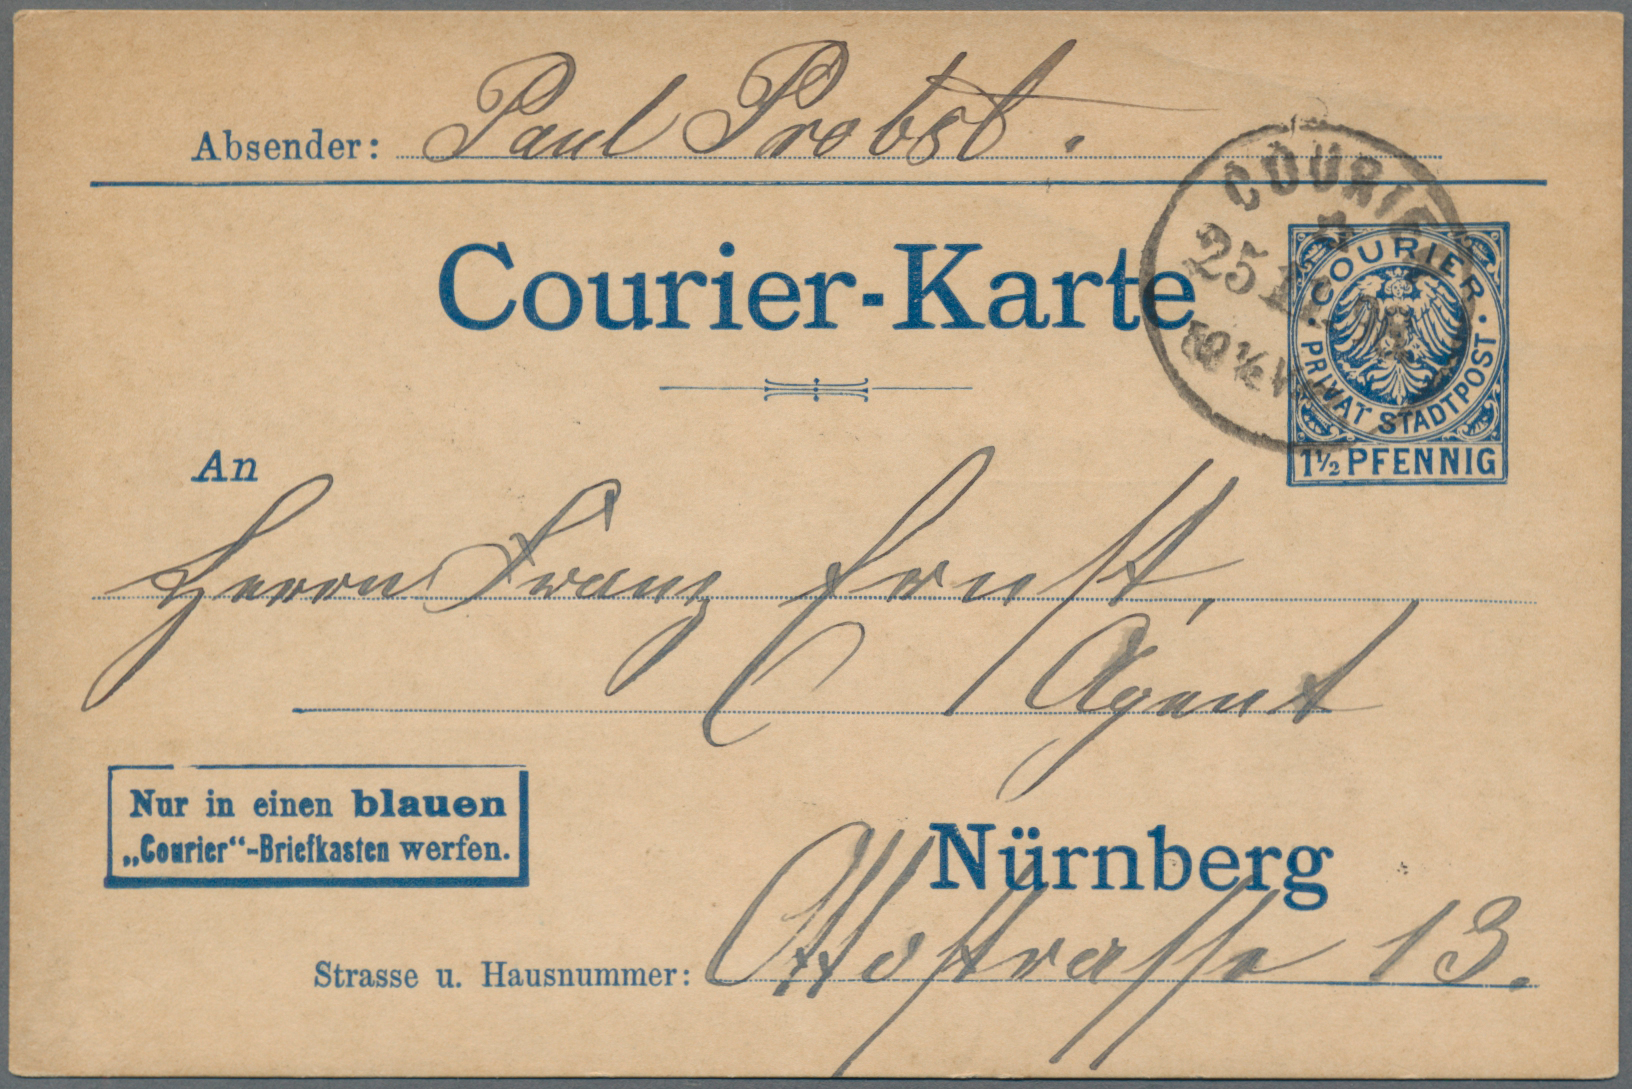 Absender: Paul Probst.
COURIER
25
10½ V
Courier-Karte
COURIER · PRIVAT STADTPOST ·
1½ PFENNIG
An
Herrn Franz Ernst,
Agent
Nur in einen blauen
„Courier“-Briefkasten werfen.
Nürnberg
Strasse u. Hausnummer: Ottostrasse 13.